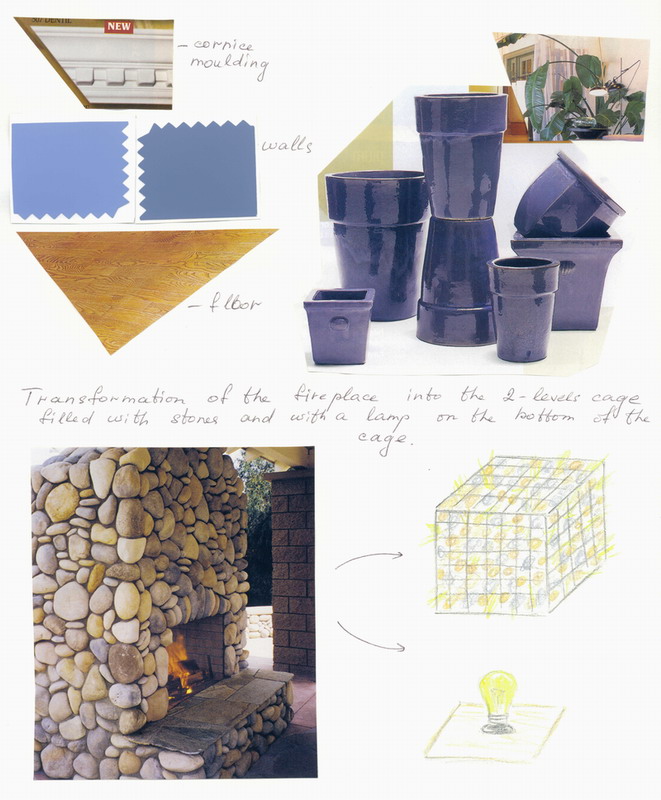 507 DENTIL
NEW
- cornice
moulding
walls
- floor
Transformation of the fireplace into the 2-levels cage
filled with stones and with a lamp on the bottom of the
cage.